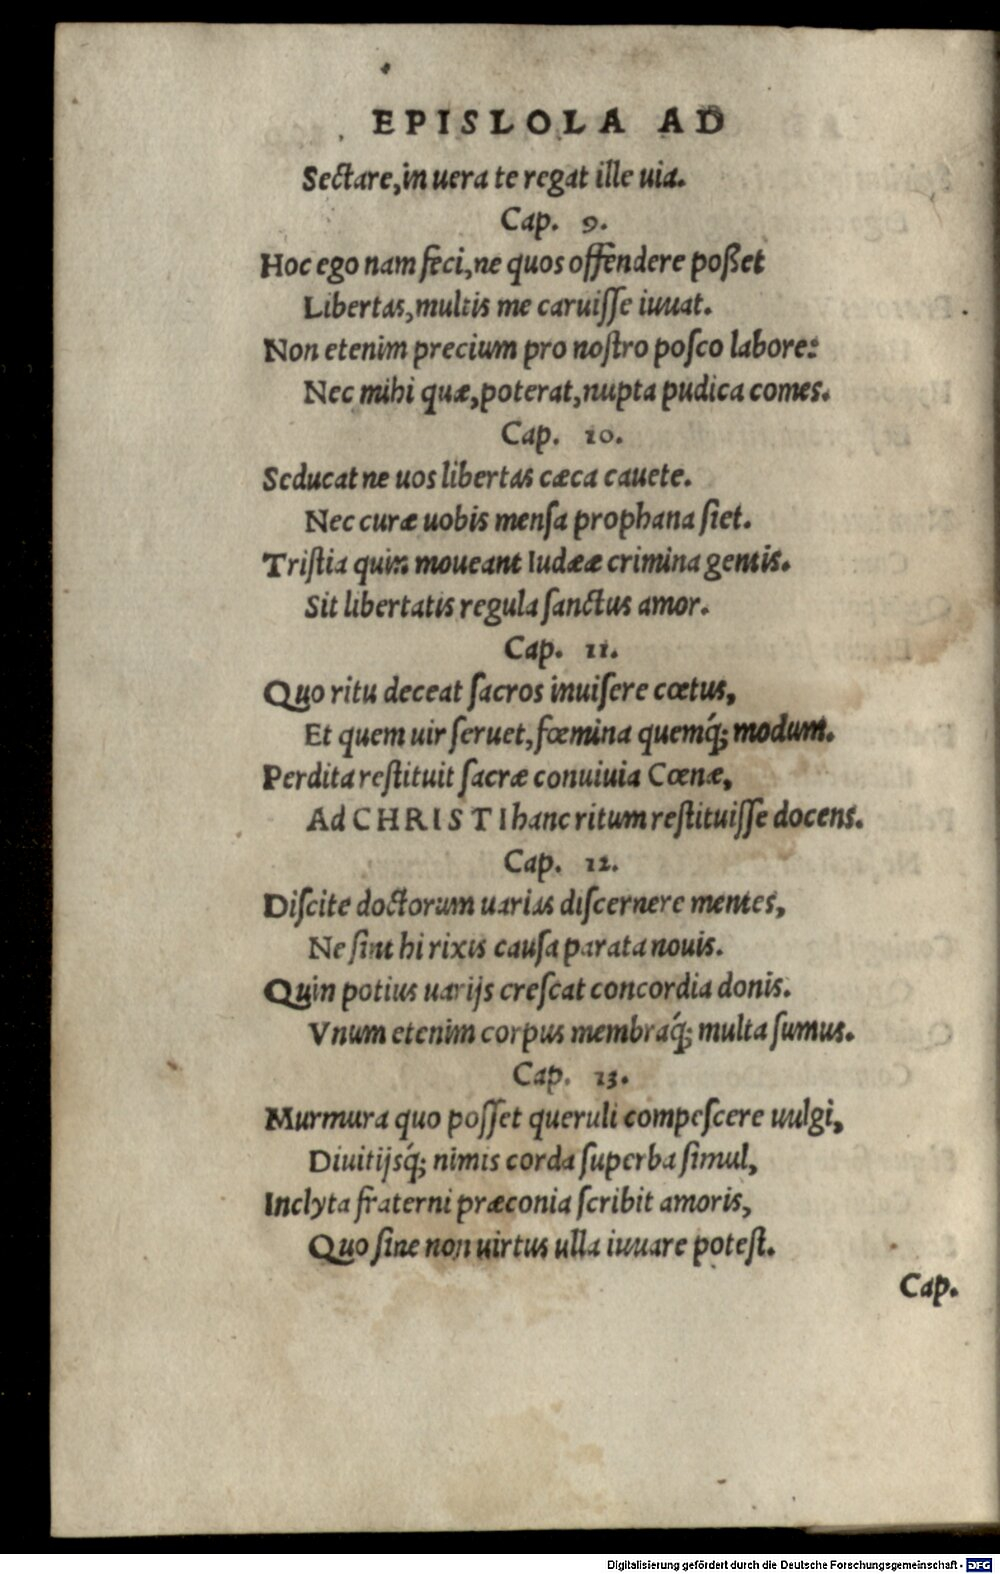 EPISLOLA AD
Sectare, in uera te regat ille uia.
Cap. 9.
Hoc ego nam feci, ne quos offendere poßet
Libertas, multis me caruiſſe iuuat.
Non etenim precium pro noſtro poſco labore:
Nec mihi quæ, poterat, nupta pudica comes.
Cap. 10.
Seducat ne uos libertas cæca cauete.
Nec curæ uobis menſa prophana ſiet.
Triſtia quin moueant Iudææ crimina gentis.
Sit libertatis regula ſanctus amor.
Cap. 11.
Quo ritu deceat ſacros inuiſere cœtus,
Et quem uir ſeruet, fœmina quemq́; modum.
Perdita reſtituit ſacræ conuiuia Cœnæ,
Ad CHRISTI hanc ritum reſtituiſſe docens.
Cap. 12.
Diſcite doctorum uarias diſcernere mentes,
Ne ſint hi rixis cauſa parata nouis.
Quin potius uarijs creſcat concordia donis.
Vnum etenim corpus membraq́; multa ſumus.
Cap. 13.
Murmura quo poſſet queruli compeſcere uulgi,
Diuitijsq́; nimis corda ſuperba ſimul,
Inclyta fraterni præconia ſcribit amoris,
Quo ſine non uirtus ulla iuuare poteſt.
Cap.
Digitalisierung gefördert durch die Deutsche Forschungsgemeinschaft - DFG